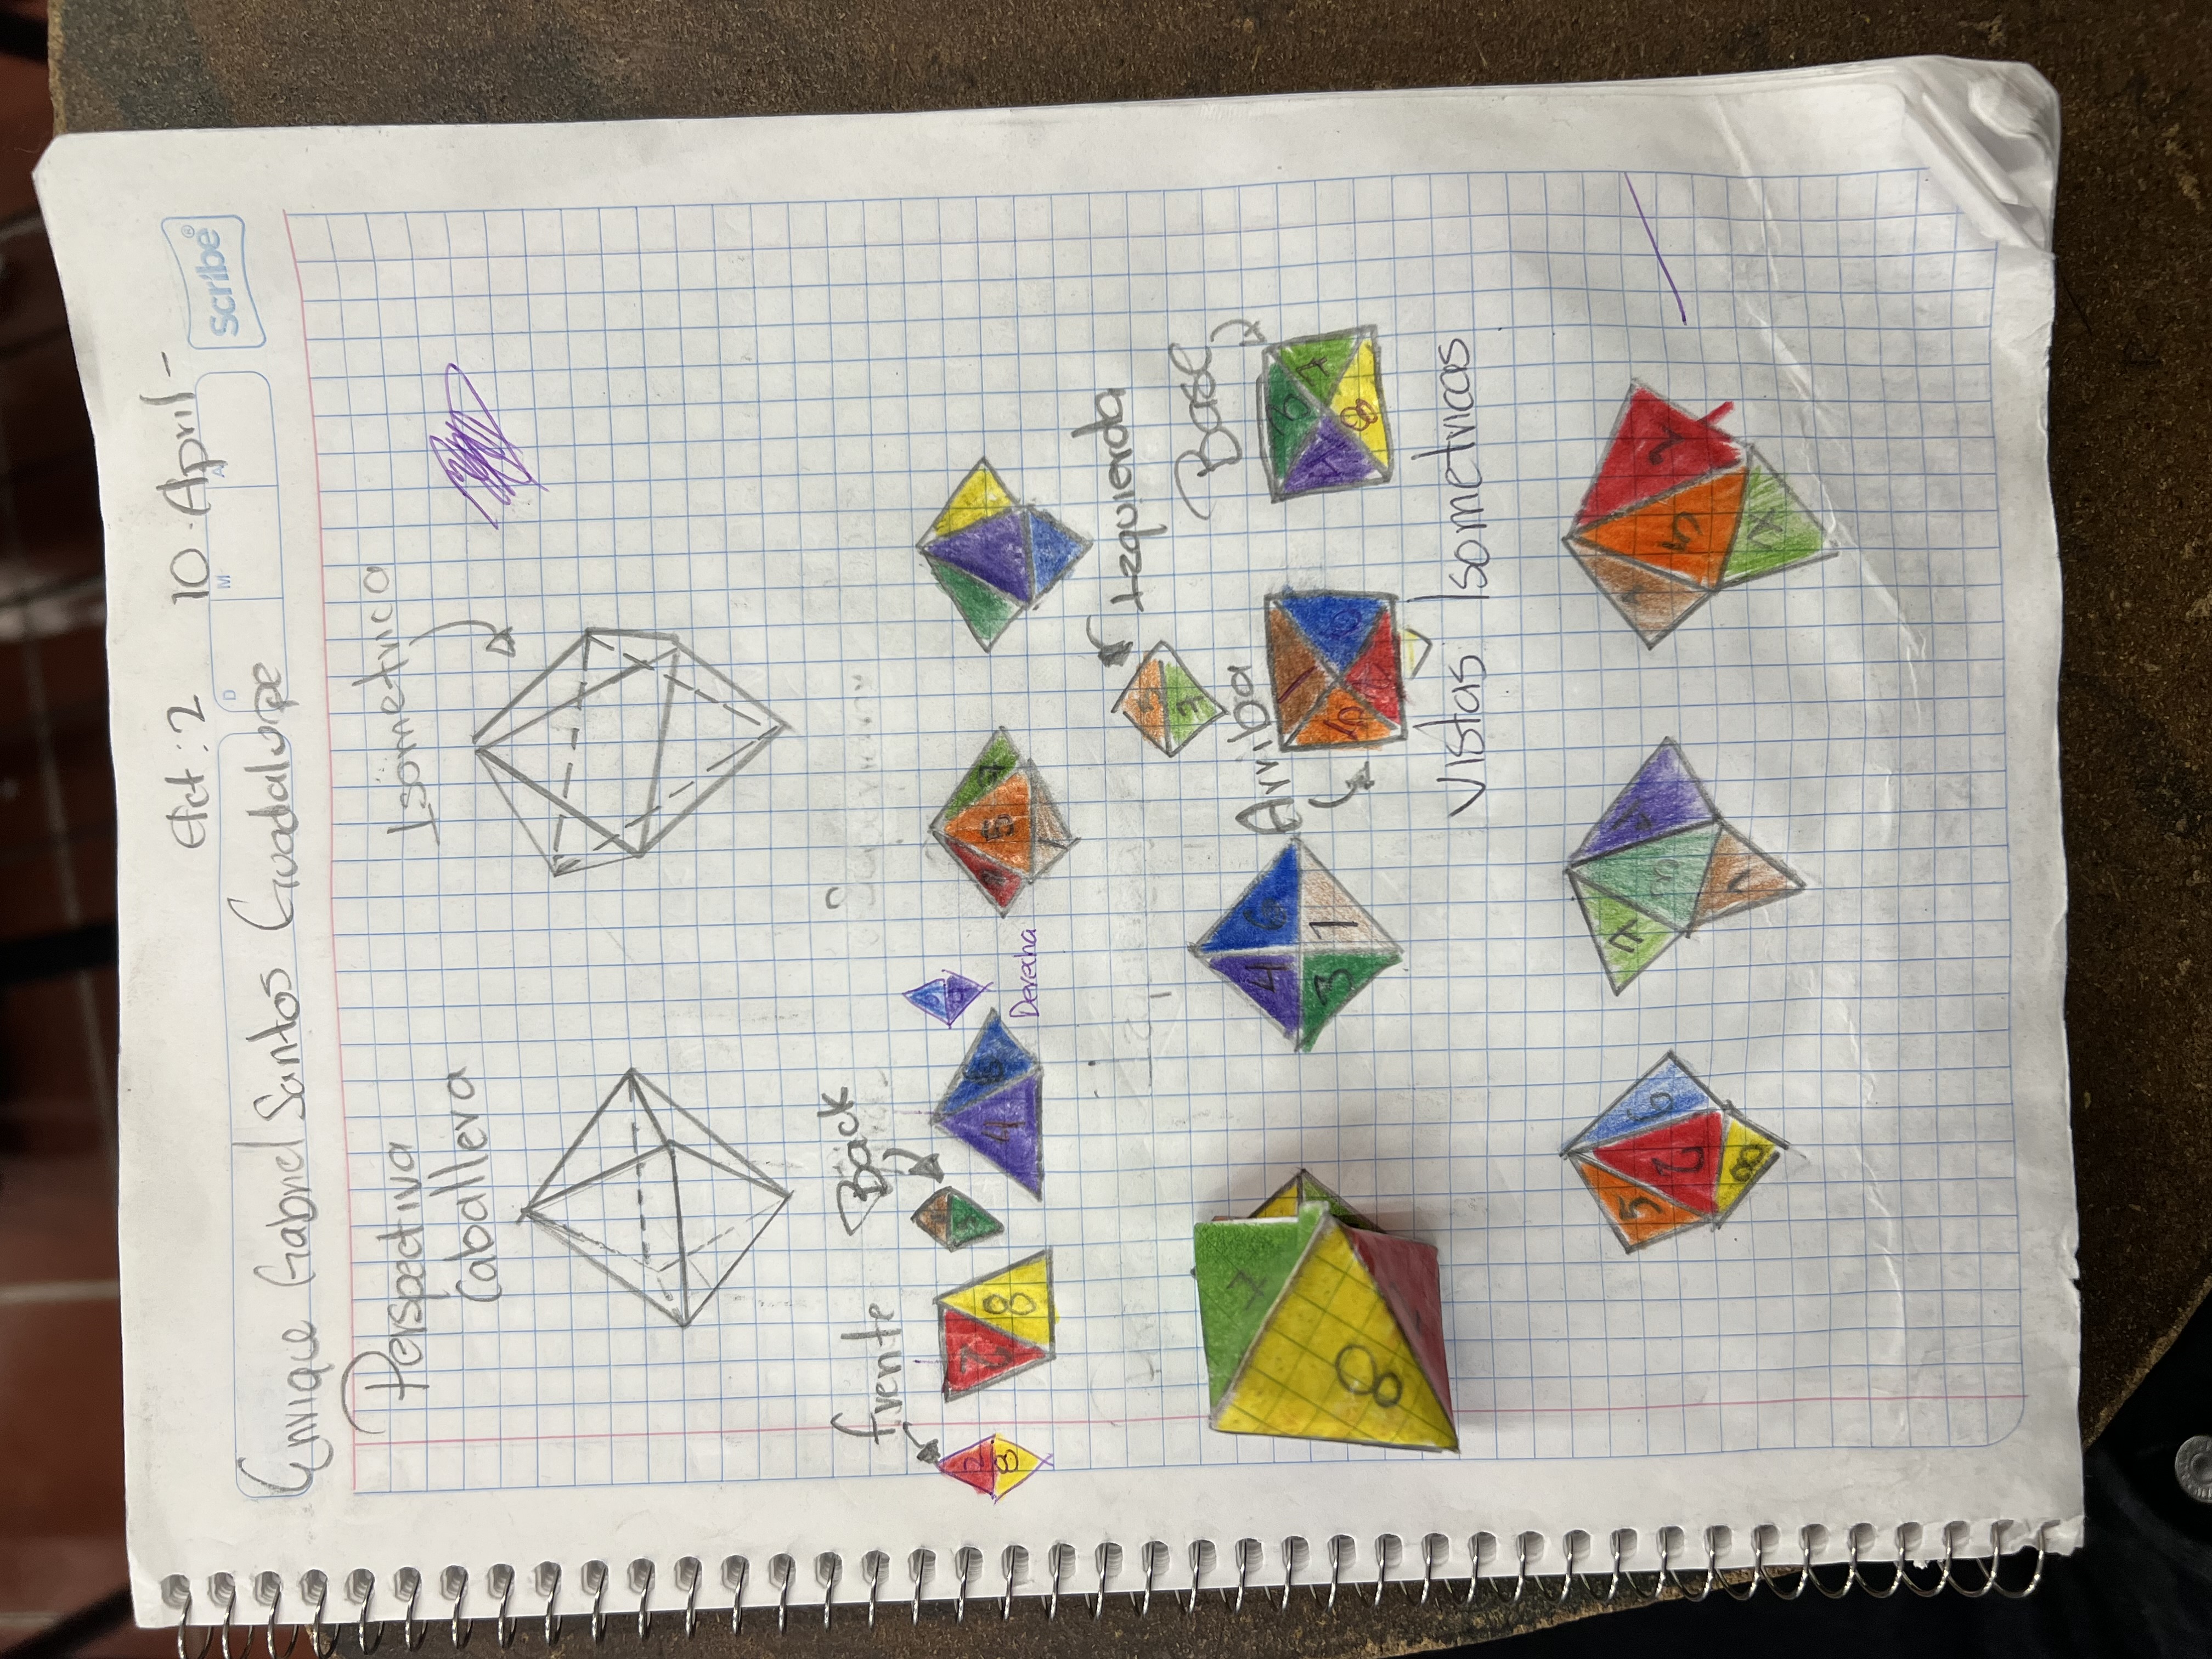 Efct: 2 10 April-
Scribe®
D M A
Enrique Gabriel Santos Guadalupe
Perspectiva
Caballera
Isometrica
frente
Back
2
8
2 8
4 6
Derecha
5 7
1
Izquierda
5
7
Base
Arriba
7
8
4 6
3 1
1
5 6
3
4 7
8
Vistas Isometricas
5 2 6
8
7 3 4
1
1 5 2
7